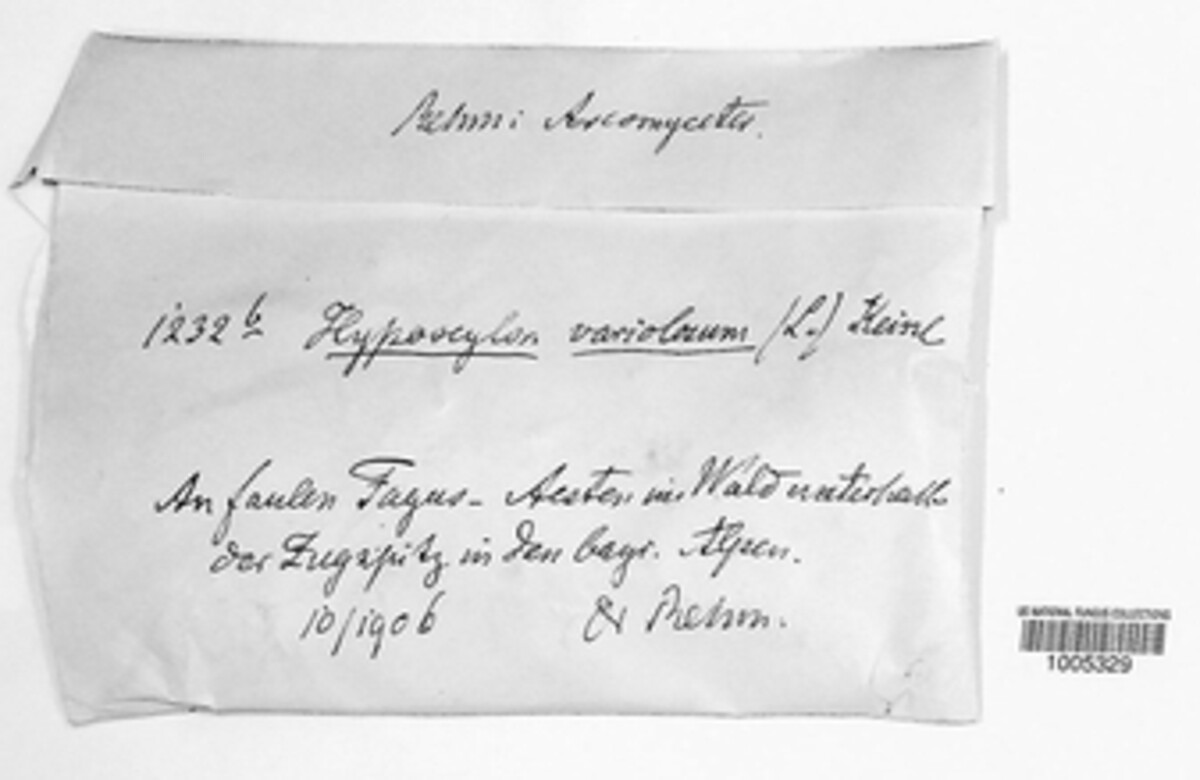 Rehm: Ascomycetes.
1232 b Hypoxylon variolosum (L.) Keissl
An faulen Fagus- Aesten im Wald unterhalb
der Zugspitz in den bayr. Alpen.
10/1906 Dr Rehm.
US NATIONAL FUNGUS COLLECTIONS
1005329